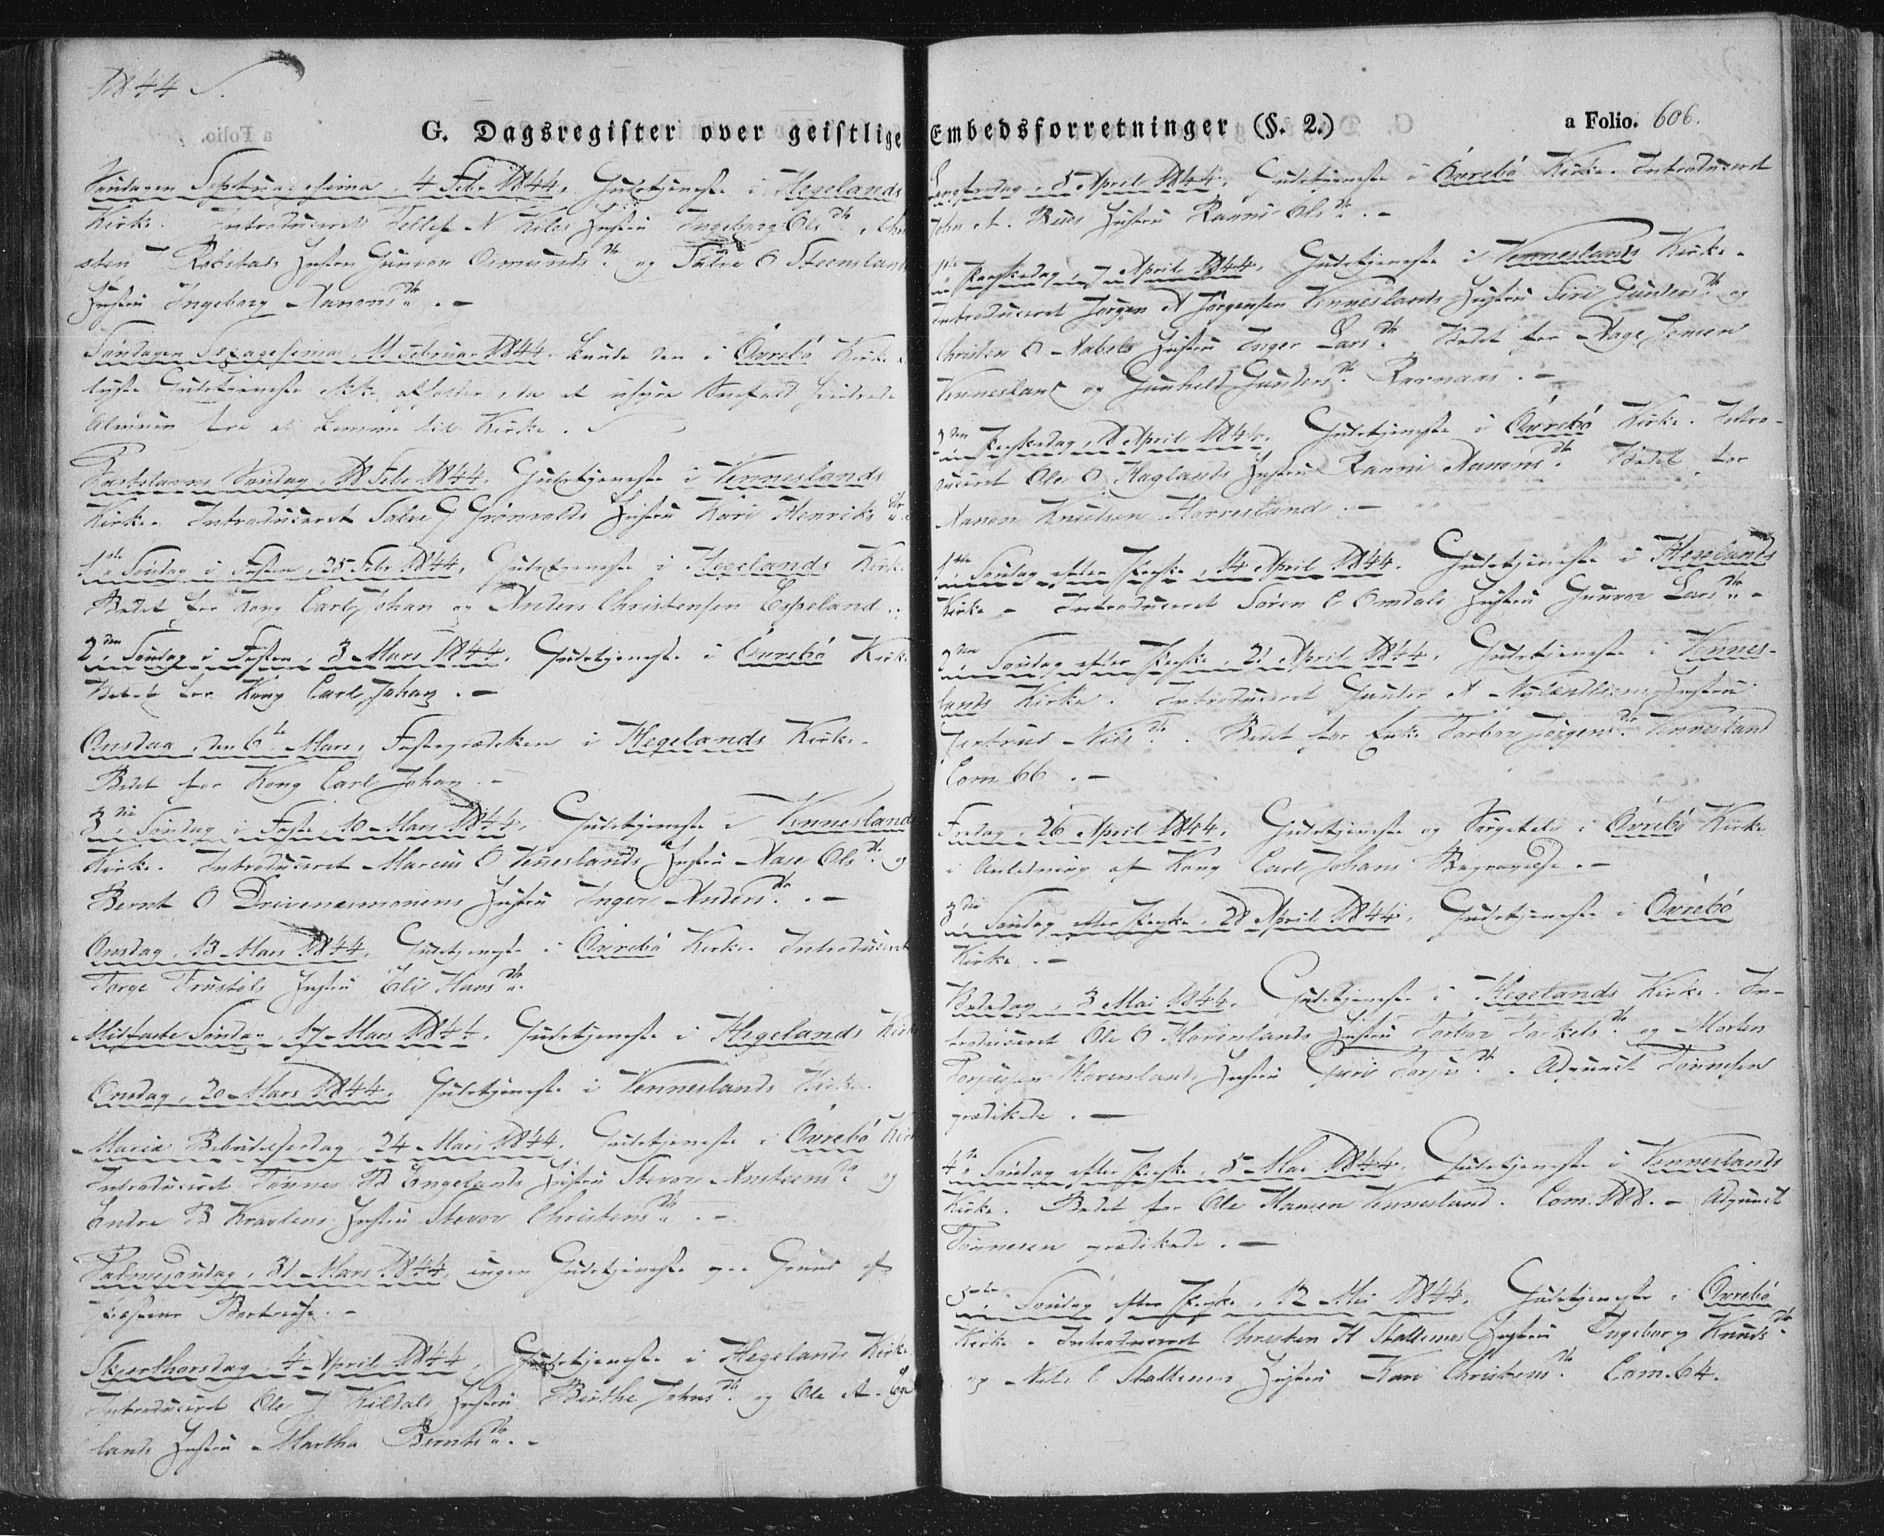 1844.
G. Dagsregister over geistlige Embedsforretninger (§. 2.)
a Folio. 606.
Søndagen Septuagesima, 4 Febr 1844, Gudstjeneste i Hegelands
Kirke. Introduceret Tellef N Kiles Hustru Ingeborg Olsdtr,
sten T Robstads Hustru Gunvor Osmundsdtr og Salve O Steensland
Hustru Ingeborg Aanonsdtr. -
Søndagen Sexagesima, 11 Februar 1844 kunde den i Øvrebö Kirke
lyste Gudstjeneste ikke afholdes, da et uhyre Sneefald hindrede
Almuen fra at komme til Kirke.
Fastelavns Søndag, 18 Febr 1844, Gudstjeneste i Venneslands
Kirke. Introduceret Salve G Grønvolds Hustru Kari Henriksdtr
1ste Søndag i Fasten, 25 Febr 1844, Gudstjeneste i Hegelands Kirke
Bedet for Kong Carl Johan og Anders Christensen Espeland.
2den Søndag i Fasten, 3 Mars 1844, Gudstjeneste i Øvrebö Kirke
Bedet for Kong Carl Johan. -
Onsdag, den 6te Mars, Fasteprædiken i Hegelands Kirke.
Bedet for Kong Carl Johan. -
3die Søndag i Faste, 10 Mars 1844, Gudstjeneste i Vennesland
Kirke. Introduceret Marcus O Venneslands Hustru Aase Olsdtr og
Bernt O Drivenesmoens Hustru Inger Andersdtr. -
Onsdag, 13 Mars 1844, Gudstjeneste i Øvrebö Kirke. Introduceret
Torge Frøstøls Hustru Eli Hansdtr.
Midfaste Søndag 17 Mars 1844, Gudstjeneste i Hegelands Kirke
Onsdag, 20 Mars 1844, Gudstjeneste i Venneslands Kirke.
Mariæ Bebudelsesdag, 24 Mars 1844, Gudstjeneste i Øvrebö Kirke
Introduceret Tønnes Engelands Hustru Stevor Amsteensdtr og
Endre B Kraglens Hustru Stevor Christensdtr. -
Palmesøndag, 31 Mars 1844, ingen Gudstjeneste paa Grund af
Præstens Bortreise. -
Skjerthorsdag, 4 April 1844, Gudstjeneste i Hegelands Kirke.
Introduceret Ole J Kildals Hustru Birthe Johnsdtr og Ole A. Ege
lands Hustru Martha Berntsdtr. -
Langfredag, 5 April 1844, Gudstjeneste i Øvrebö Kirke. Introduceret
John A. Bues Hustru Ranni Olsdtr. -
1ste Paaskedag, 7 April 1844, Gudstjeneste i Venneslands Kirke.
Introduceret Jørgen A Jørgensen Venneslands Hustru Siri Gundersdtr og
Christen O Aabels Hustru Inger Larsdtr. Bedet for Aage Jensen
Vennesland og Gunhild Gundersdtr Ravnaas. -
2den Paaskedag, 8 April 1844, Gudstjeneste i Øvrebö Kirke. Intro-
duceret Ole O Haglands Hustru Ranni Aanonsdtr. Bedet for
Aanon Knudsen Horrisland. -
1ste Søndag efter Paaske, 14 April 1844, Gudstjeneste i Hegelands
Kirke - Introduceret Søren C Omdals Hustru Gunvor Larsdtr -
2den Søndag efter Paaske, 21 April 1844, Gudstjeneste i Vennes-
lands Kirke. Introduceret Gunder A Hustru
Gertrud Nilsdtr. Bedet for Enke Torbor Jørgensdtr Vennesland
Com. 66. -
Fredag, 26 April 1844, Gudstjeneste og Sørgetale i Øvrebö Kirke
i Anledning af Kong Carl Johans Begravelse. -
3die Søndag efter Paaske, 28 April 1844, Gudstjeneste i Øvrebö
Kirke. -
Bededag, 3 Mai 1844, Gudstjeneste i Hegelands Kirke. In-
troduceret Ole O Hovenlands Hustru Torbor Torkelsdtr og Morten
Torjussen Hovenlands Hustru Guri Torjusdtr. Adjunct Tønnesen
prædikede. -
4de Søndag efter Paaske, 5 Mai 1844, Gudstjeneste i Venneslands
Kirke. Bedet for Ole Hansen Vennesland. Com. 188. - Adjunct
Tønnesen prædikede. -
5te Søndag efter Paaske, 12 Mai 1844, Gudstjeneste i Øvrebö
Kirke. Introduceret Christen H Stallemos Hustru Ingeborg Knudsdtr
og Nils C Stallemos Hustru Kari Christensdtr. Com. 64.